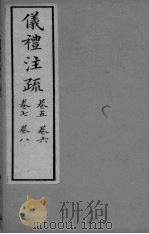 儀禮注疏
卷五 卷六
卷七 卷八